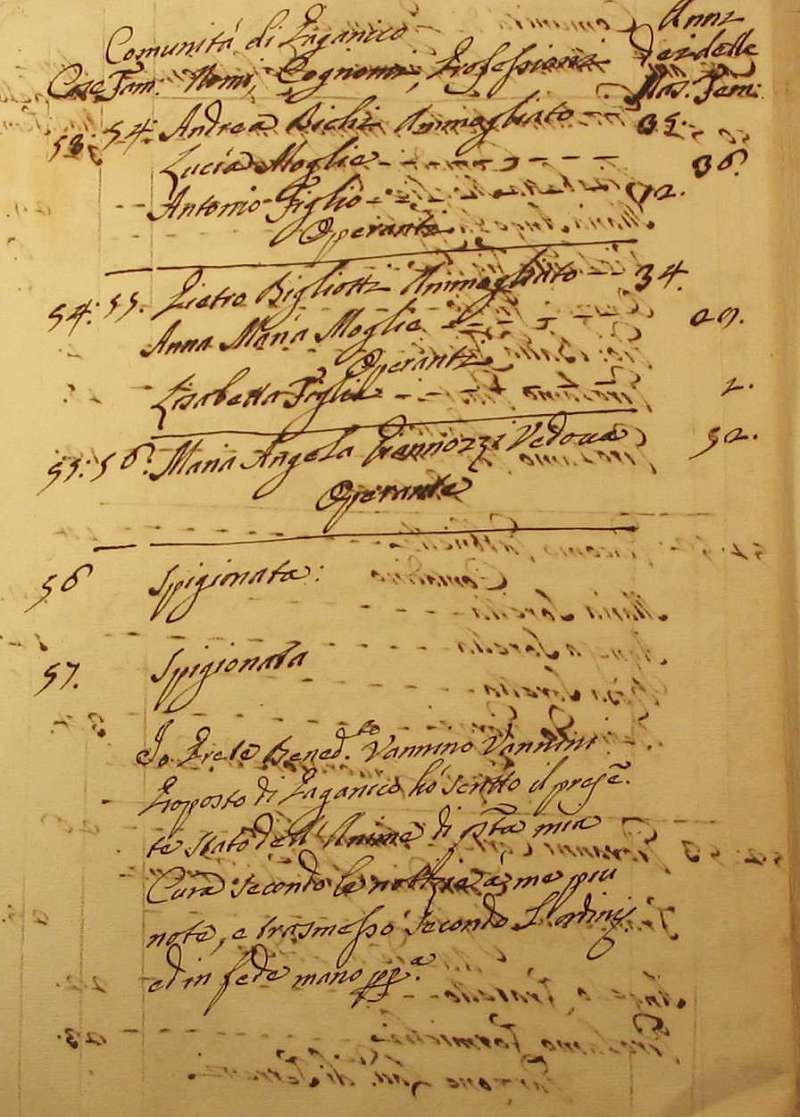 Comunità di Paganico Anni
Case Fam: Nomi, Cognomi, Professioni Dei delle
Mas. Fem:
53: 54: Andrea Bichi Ammogliato 35:
Lucia Moglie 36.
Antonio Figlio 12.
Operanti
54: 55. Pietro Bigliotti Ammogliato 34.
Anna Maria Moglie 29.
Operanti
Lisabetta Figlia 2.
55: 56. Maria Angela Giannozzi Vedova 52.
Operante
56 Spigionata:
57. Spigionata
Io Prete Bened.to Vannino Vannini
Proposto di Paganico hò scritto il prese~
te stato dell'Anime di pñta mia
Cura secondo le notizie à me più
note, e trasmesso secondo L'ordini
ed in fede mano pp.a